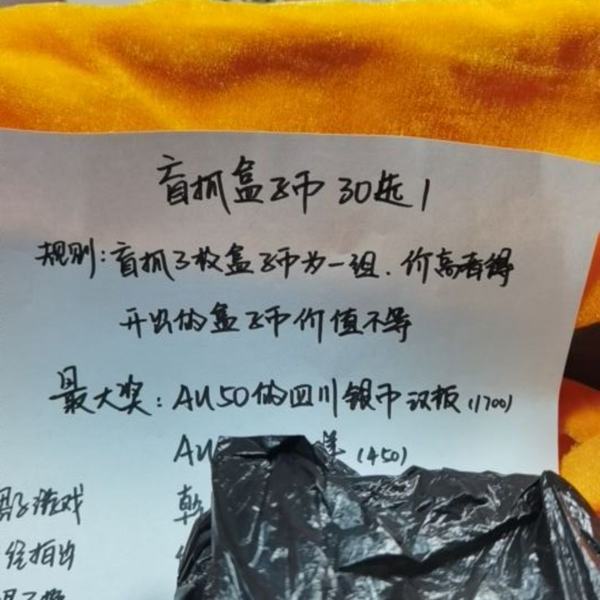 盲抓盒子币 30选1
规则:盲抓3枚盒子币为一组.价高者得
开出的盒子币价值不等
最大奖:AU50的四川银币汉板(1700)
AU
(450)
游戏
拍出